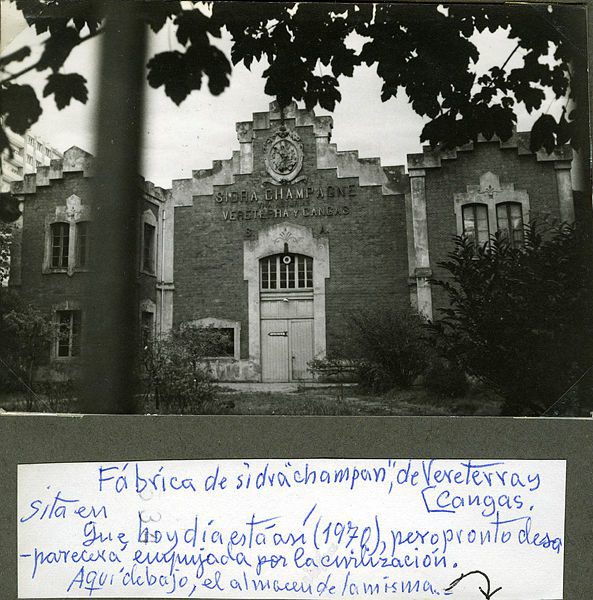 SIDRA CHAMPAGNE
VERETERRA Y CANGAS
S. A.
Fábrica de sidra "champan", de Vereterra y
Cangas.
sita en
Que hoy día está así (1970), pero pronto desa
-parecerá, empujada por la civilización.
Aquí debajo, el almacen de la misma.